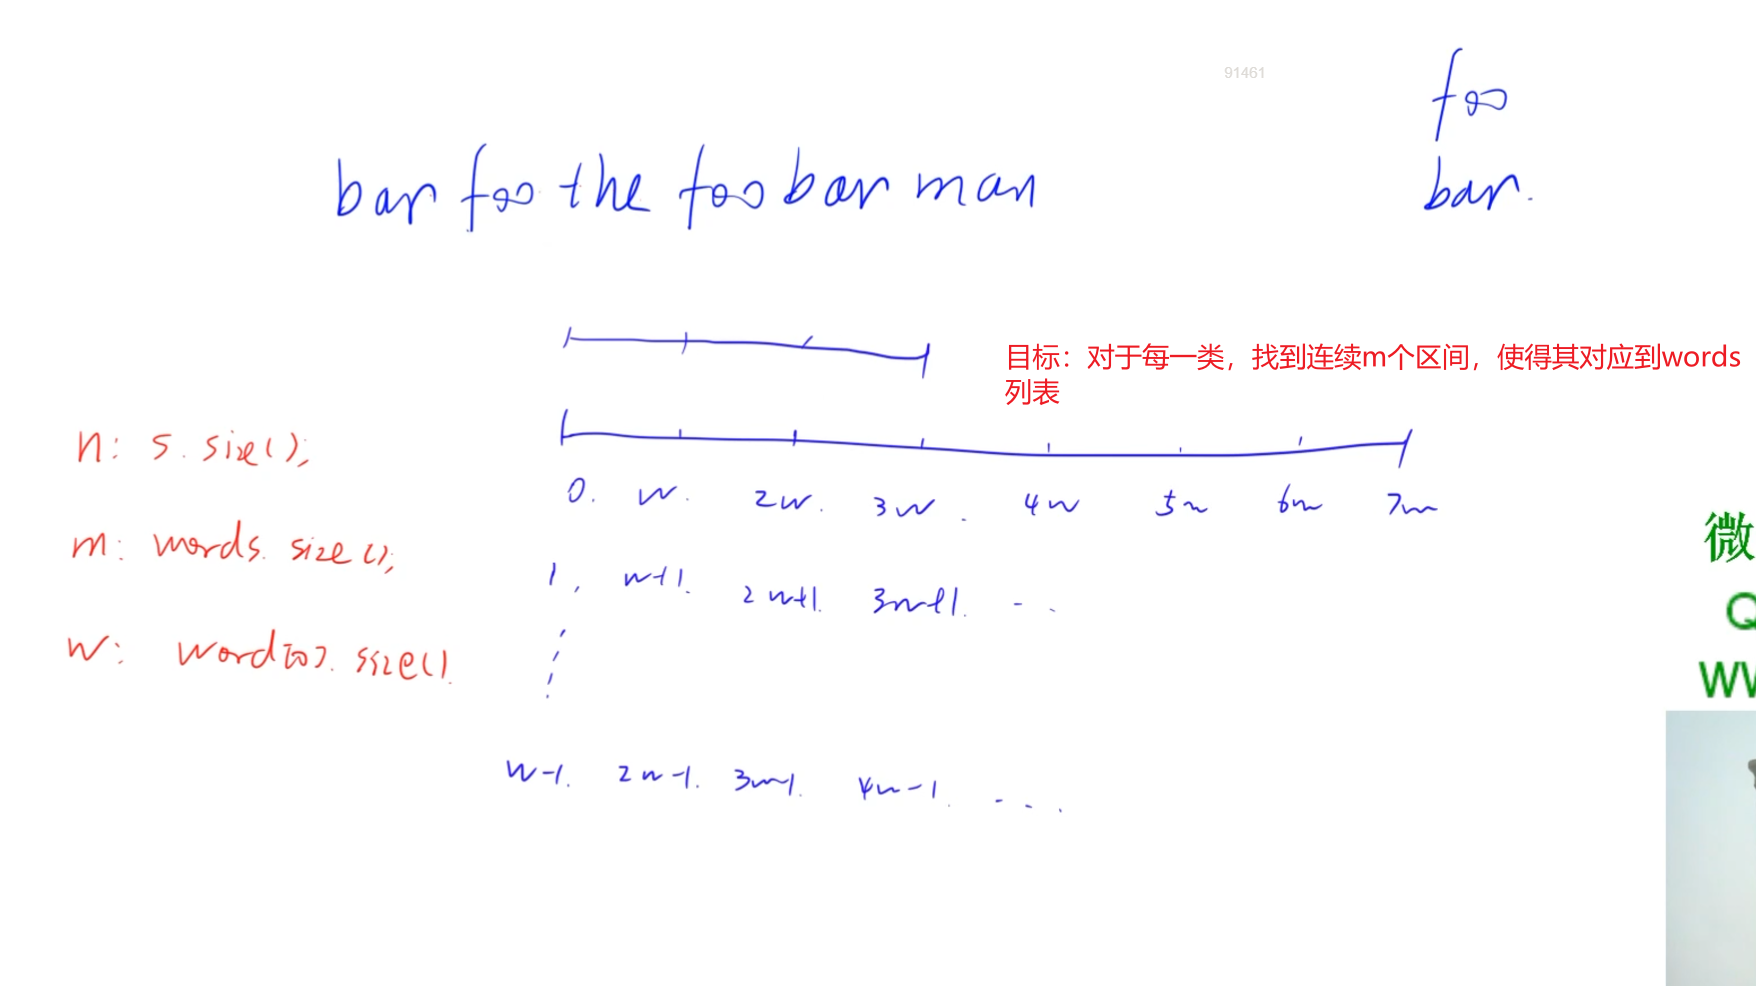 91461
foo
bar.
bar foo the foo bar man
目标：对于每一类，找到连续m个区间，使得其对应到words
列表
n: s.size();
m: words.size();
w: word[0].size().
0. w. 2w. 3w. 4w 5w 6w 7w
1, w+1. 2w+1. 3w+1. ..
w-1. 2w-1. 3w-1. 4w-1. ...
微
Q